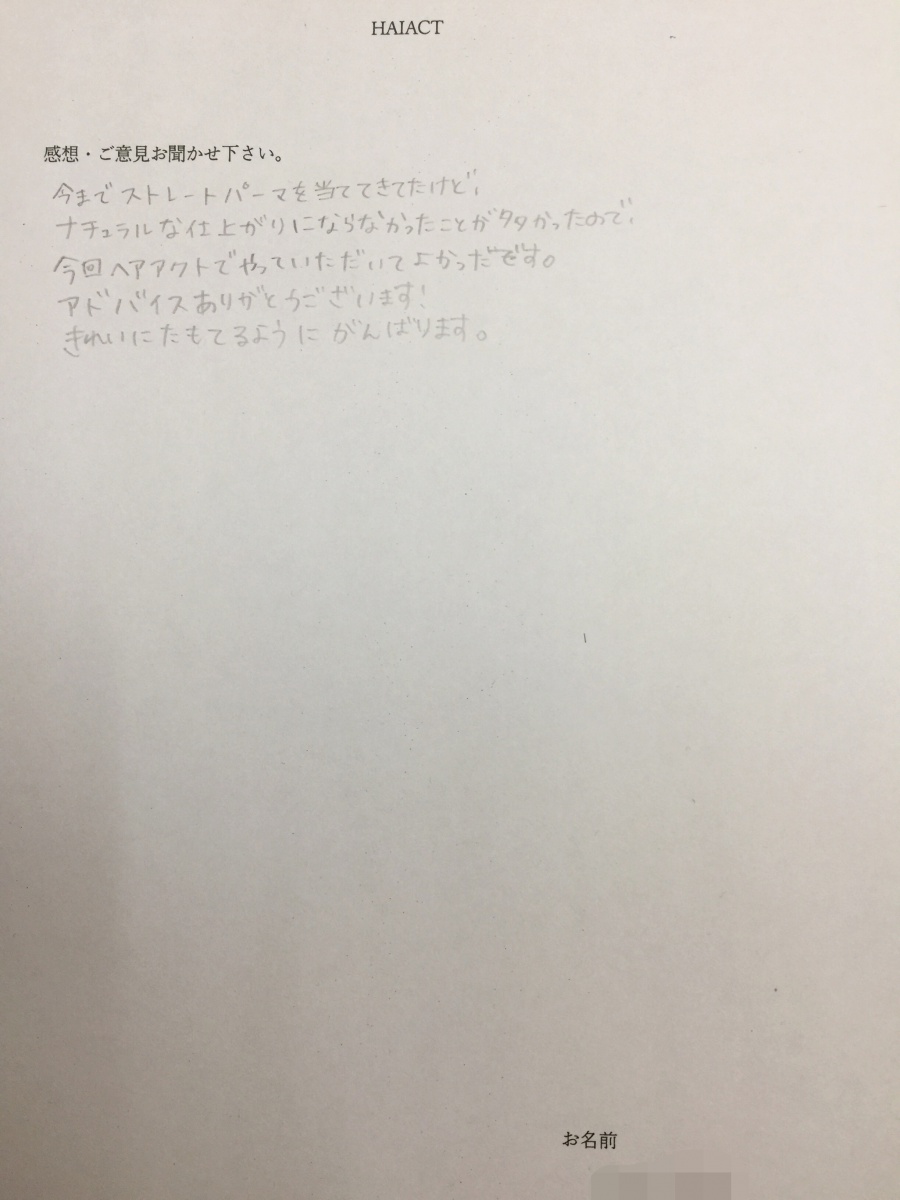 HAIACT
感想・ご意見お聞かせ下さい。
今までストレートパーマを当ててきてたけど、
ナチュラルな仕上がりにならなかったことが多かったので、
今回ヘアアクトでやっていただいてよかったです。
アドバイスありがとうございます!
きれいにたもてるようにがんばります。
お名前